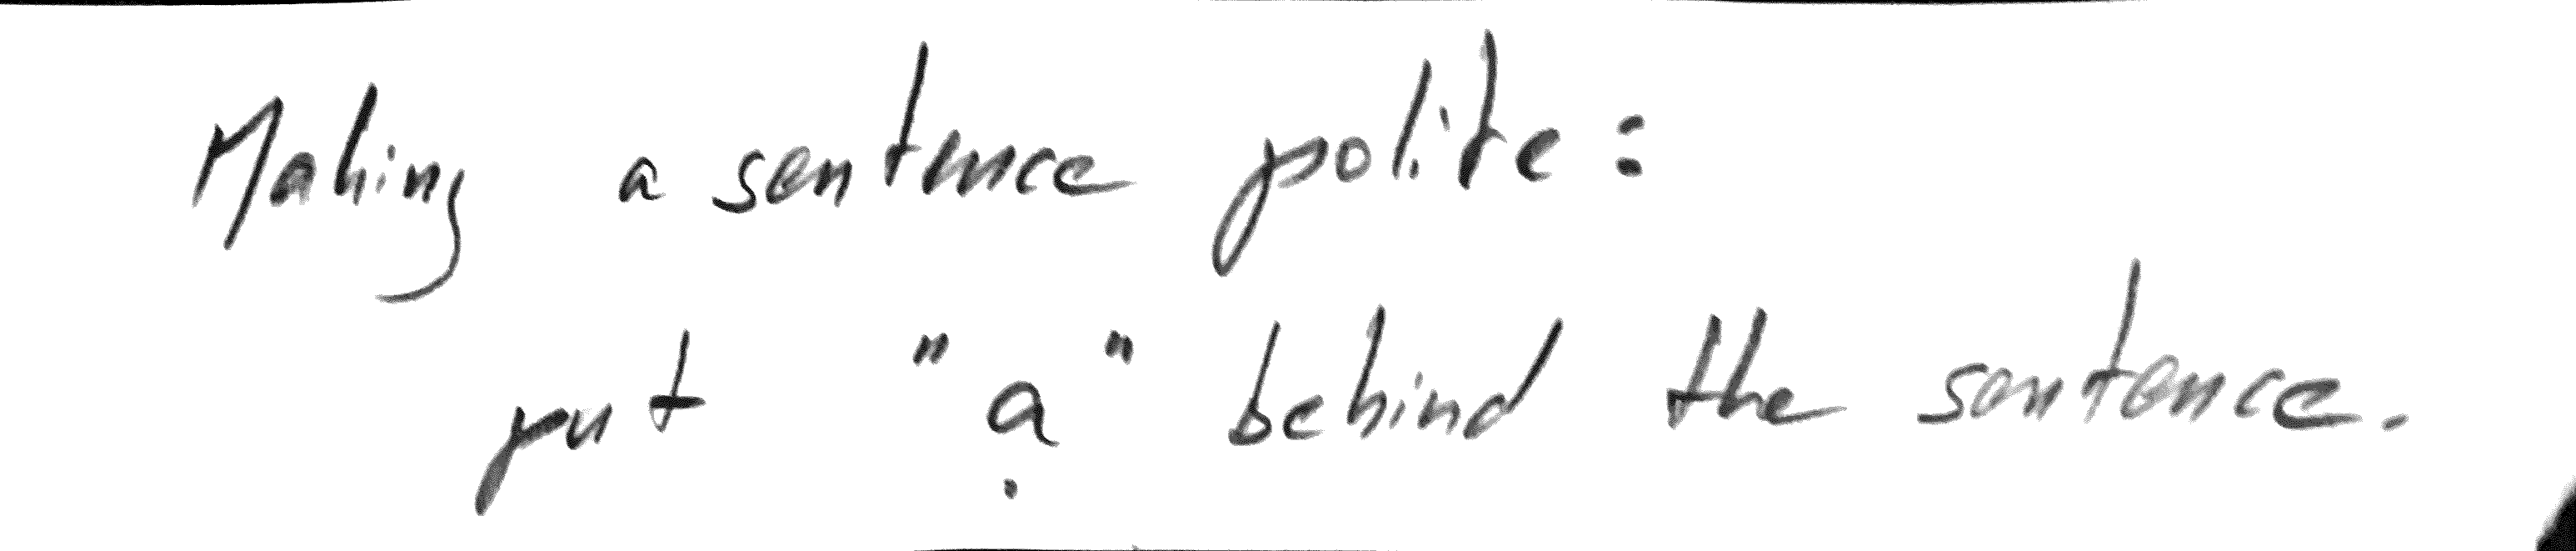 Making a sentence polite:
put "ạ" behind the sentence.